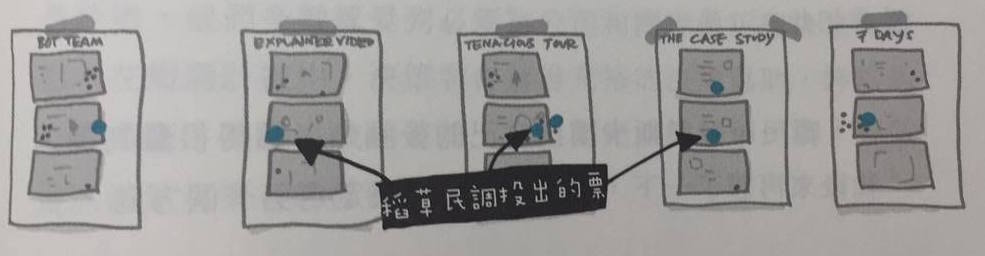 BOT TEAM
EXPLAINER VIDEO
TENACIOUS TOUR
THE CASE STUDY
7 DAYS
稻草民調投出的票